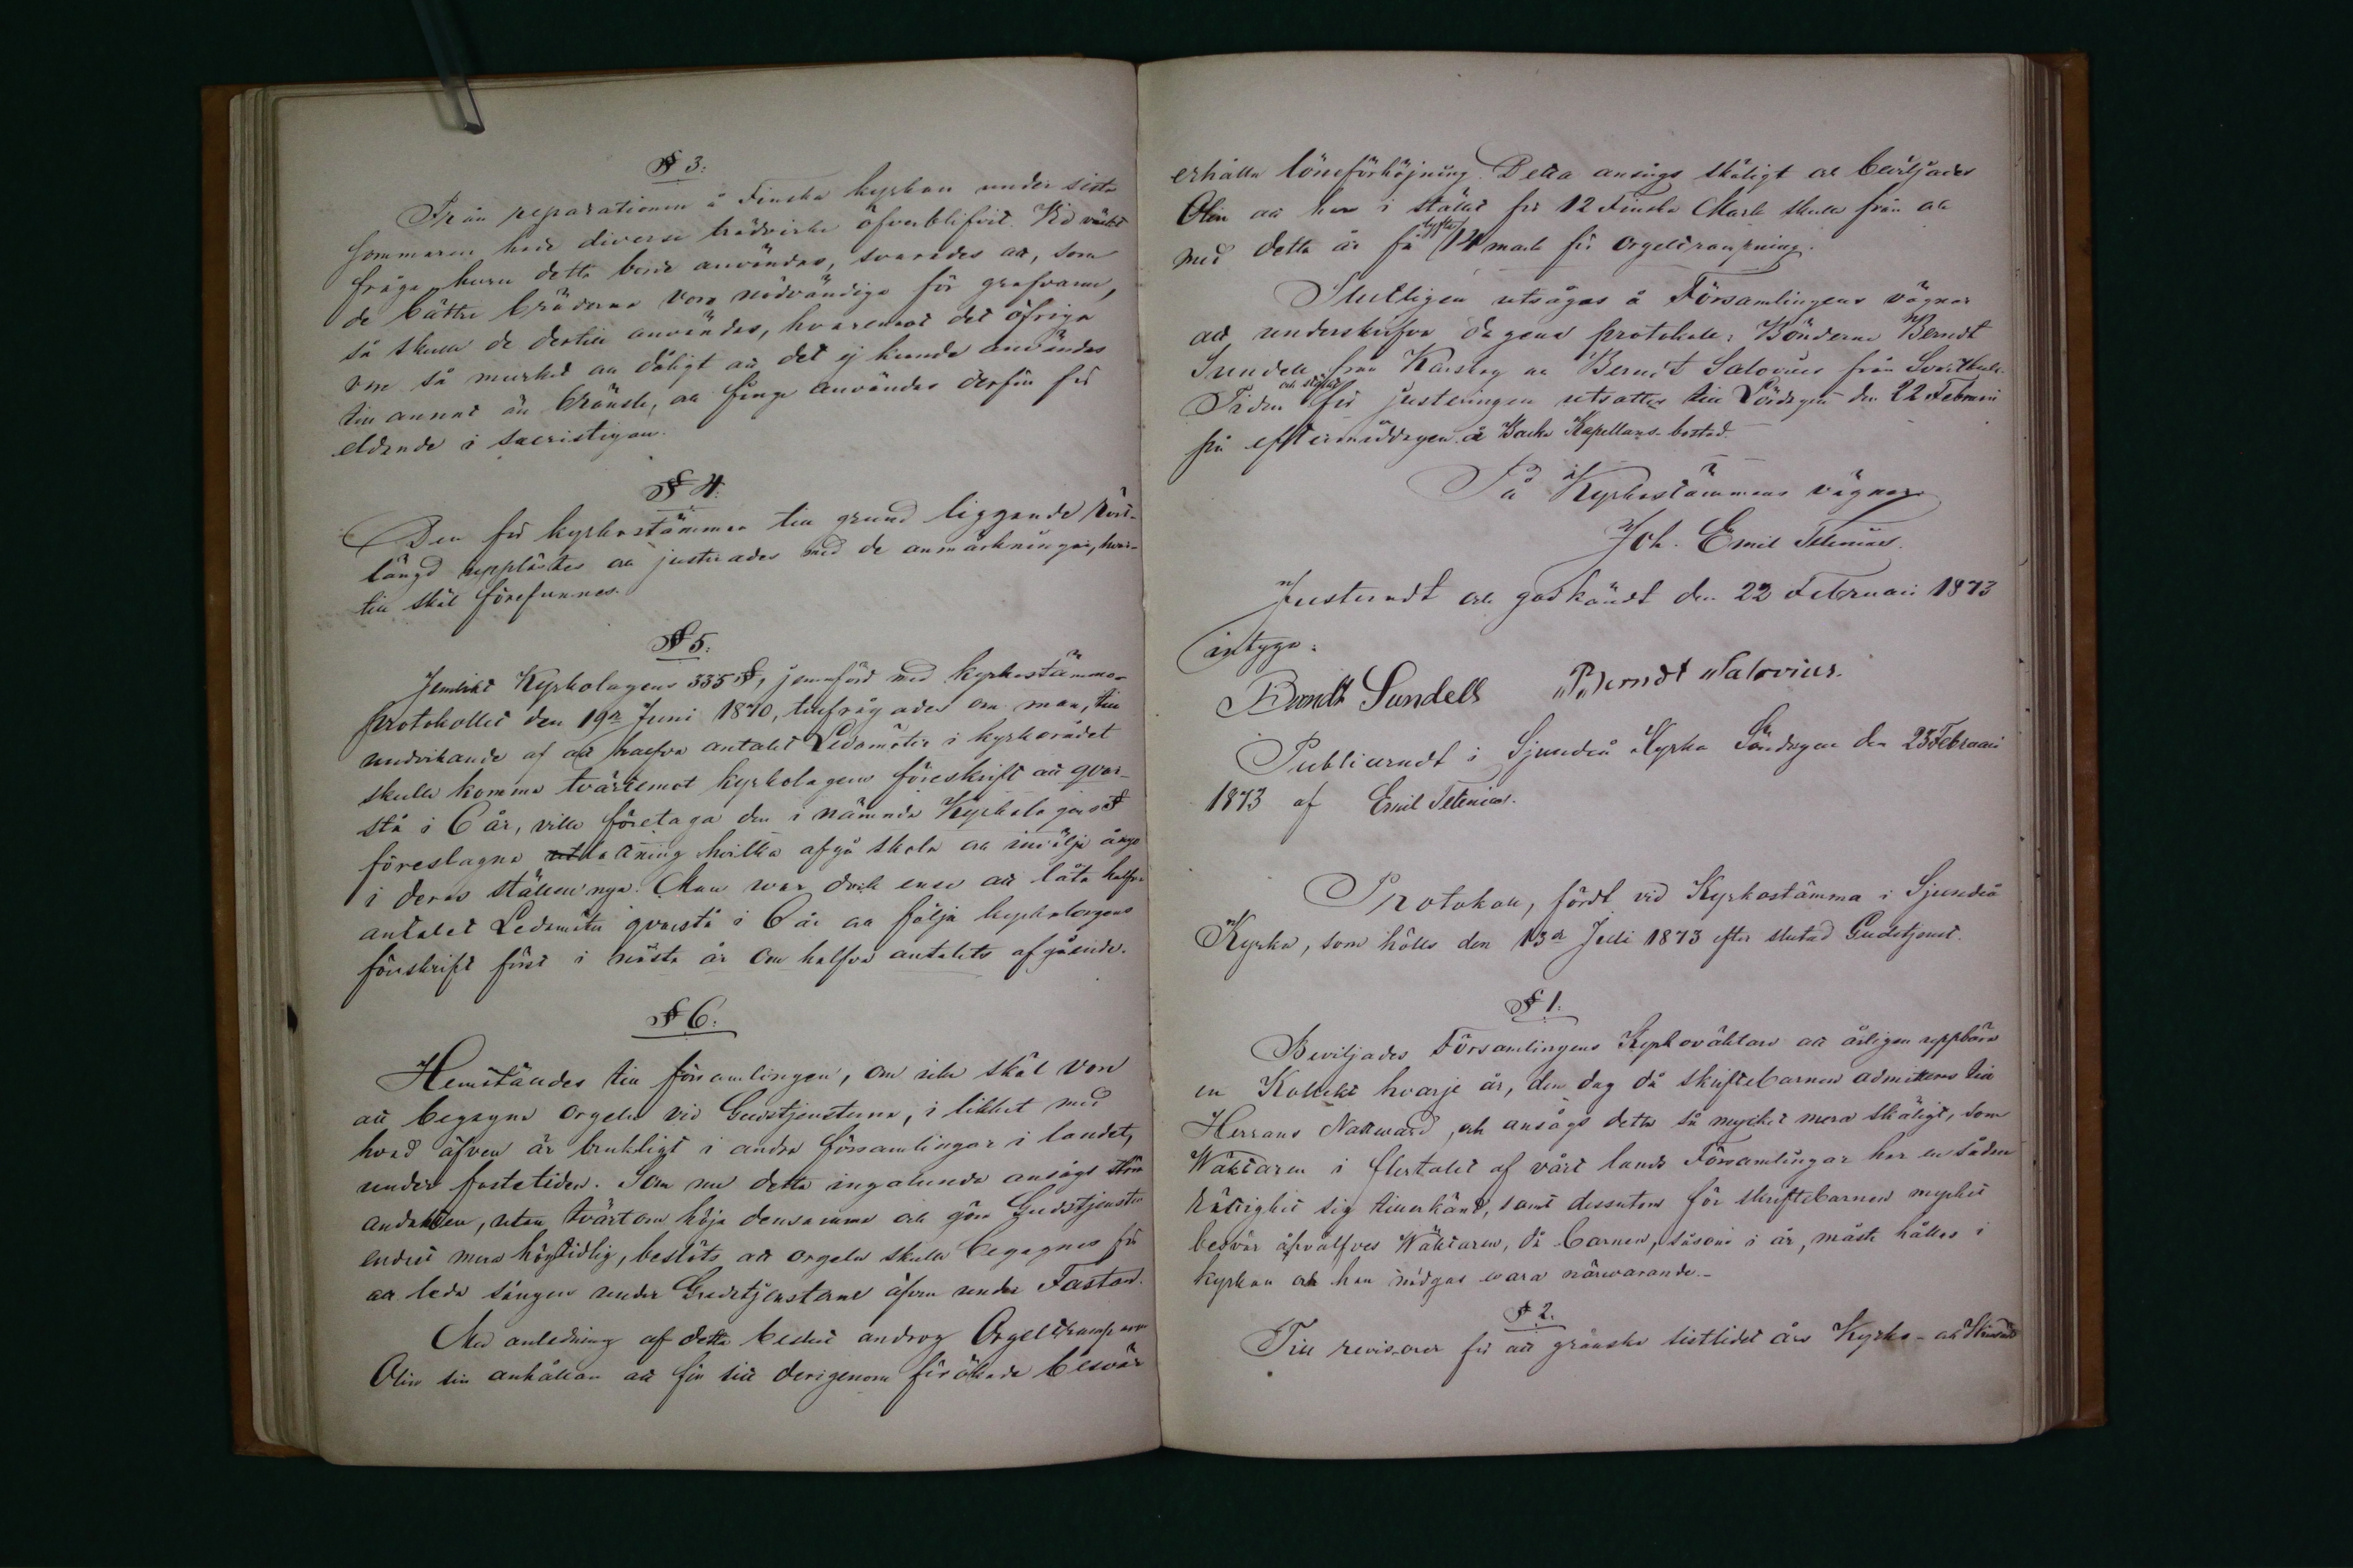 § 3:
Från reparationen å Finska kyrkan under sista
sommaren hade diverse trädvirke öfverblifvit. Vid väckt
fråga huru detta borde användas, svarades att, som
de bättre bräderna voro nödvändiga för grafvarne,
så skulle de dertill användas, hvaremot det öfriga
vore så murket och dåligt att det ej kunde användas
till annat än bränsle, och finge användas derför för
eldande i sacristigan.
§ 4:
Den för kyrkostämman till grund liggande röst-
längd upplästes och justerades med de anmärkningar, hvar-
till skäl förefunnos.
§ 5:
Jemlikt Kyrkolagens 335 §, jemnförd med kyrkostämmo-
protokollet den 19de Juni 1870, tillfrågades om man, till
undvikande af att halfva antalet Ledamöter i kyrkorådet
skulle komma tvärtemot kyrkolagens föreskrift att qvar-
stå i 6 år, ville företaga den i nämnde Kyrkolagens §
föreslagna utlottning hvilka afgå skola och invälja ånyo
i deras ställen nya. Man war dock ense att låta halfva
antalet Ledamöter qvarstå i 6 år och följa kyrkolagens
föreskrift först i nästa år om halfva antalets afgående.
§ 6:
Hemställdes till församlingen, om icke skäl vore
att begagna orgeln vid Gudstjensterna, i likhet med
hvad äfven är brukligt i andra församlingar i landet,
under fastetiden. Som nu detta ingalunda ansågs störa
andakten, utan tvärtom höja densamma och göra Gudstjensten
endast mera högtidlig, beslöts att orgeln skulle begagnas för
att leda sången under Gudstjensterne äfven under Fastan.
Med anledning af detta beslut androg Orgeltramparen
Olin sin anhållan att för sitt derigenom förökade besvär
erhålla löneförhöjning. Detta ansågs skäligt och beviljades
Olin att han i stället för 12 Finska Mark skulle från och
med detta år få lyfta 14 mark för orgeltrampning.
Slutligen utsågos å Församlingens vägnar
att underskrifva dagens protokoll: Bönderne Berndt
Sundell från Karskog och Berndt Salovius från Svartbäck.
Tiden och stället för justeringen utsattes till Lördagen den 22 Februari
på eftermiddagen å Backa Kapellans-bostad.
På Kyrkostämmans vägnar
Joh. Emil Telenius.
Justeradt och godkändt den 22 Februari 1873
intyga:
Berndt Sundell Berndt Salovius.
Publiceradt i Sjundeå Kyrka Söndagen den 23 Februari
1873 af Emil Telenius.
Protokoll, fördt vid Kyrkostämma i Sjundeå
Kyrka, som hölls den 13de Juli 1873 efter slutad Gudstjenst.
§ 1:
Beviljades Församlingens Kyrkoväktare att årligen uppbära
en Kollekt hvarje år, den dag då skriftebarnen admitteras till
Herrans Nattward, och ansågs detta så mycket mera skäligt, som
Wäktaren i flertalet af vårt lands Församlingar har en sådan
rättighet sig tillerkänd, samt dessutom för skriftebarnen mycket
besvär åhvälfves Wäktaren, då barnen, såsom i år, måste hållas i
kyrkan och han nödgas wara närwarande.-
§ 2.
Till revisorer för att granska sistlidet års Kyrko- och